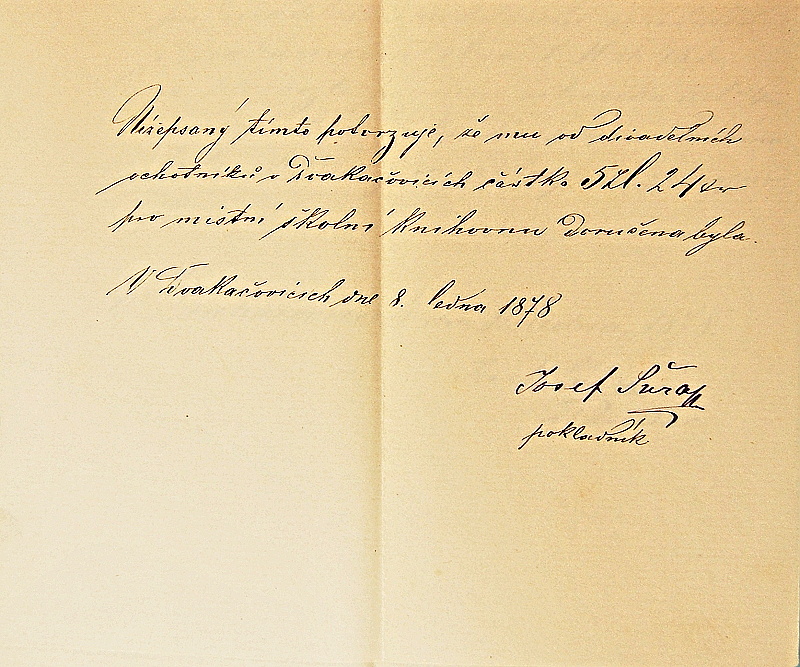 Nížepsaný tímto potvrzuje, že mu od divadelních
ochotníků v Dvakačovicích částka 5 zl. 24 kr
pro místní školní knihovnu doručena byla.
V Dvakačovicích dne 8. ledna 1878
Josef
pokladník